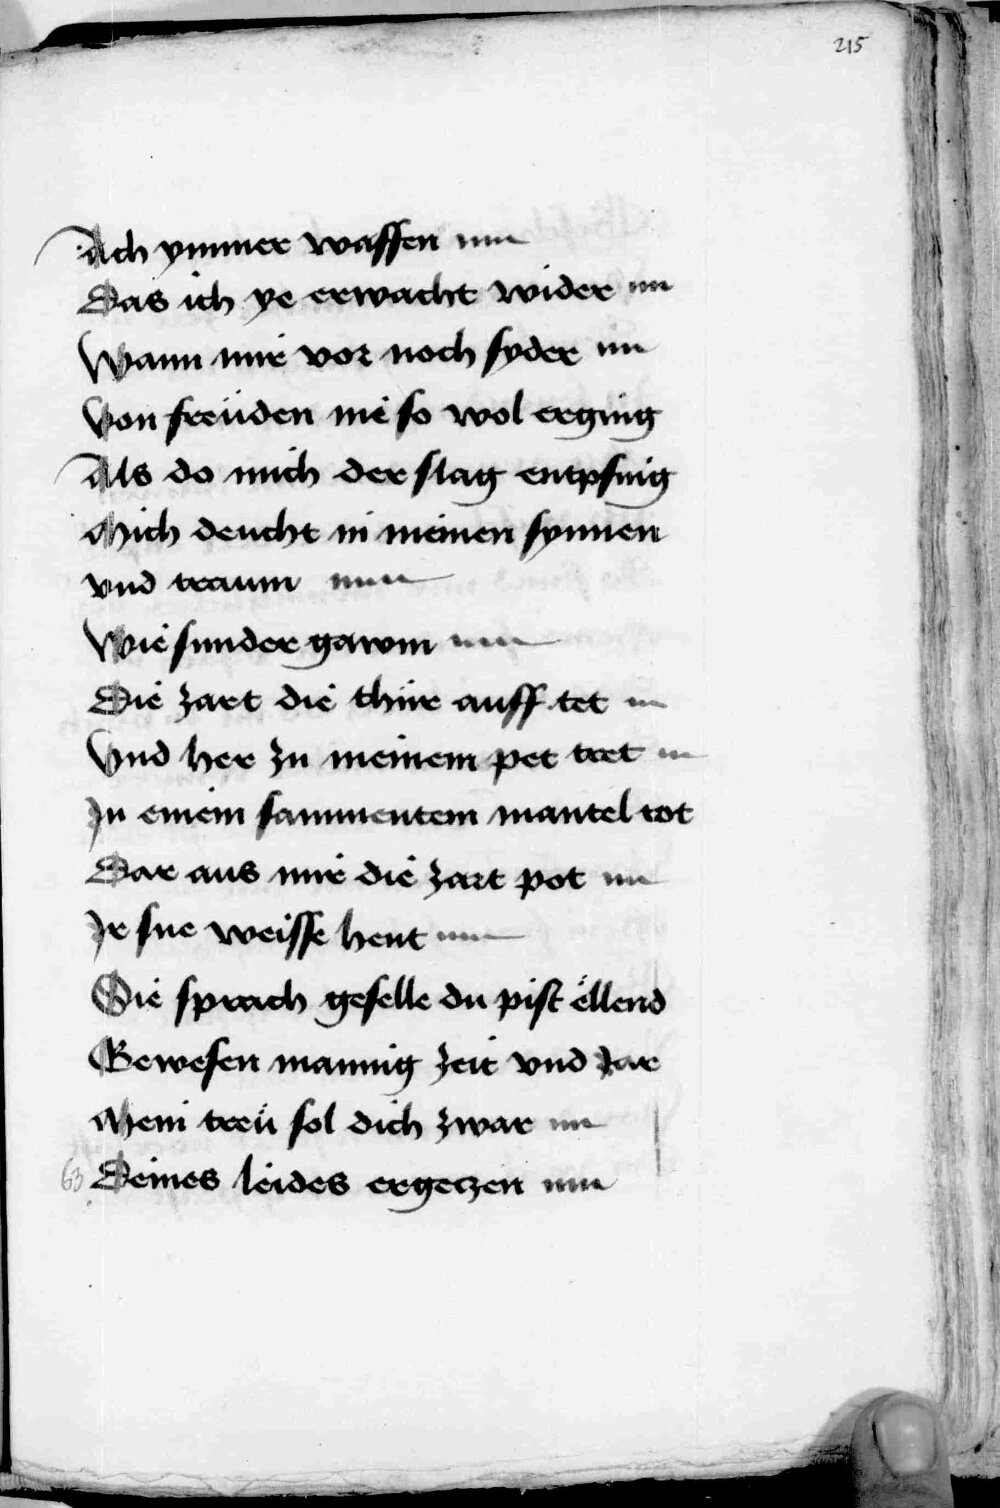 215
Ach ymmer waffen
Das ich ye erwacht wider
Wann mir vor noch syder
Von freüden nie so wol erging
Als do mich der slag entpfing
Mich deucht in meinen synnen
vnd traum
Wie sunder gawm
Die zart die thür auff tet
Vnd her zu meinem pet tret
In einem sammentem mantel rot
Dar aus mir die zart pot
Ir sne weisse hent
Sie sprach geselle du pist ellend
Gewesen mannig zeit vnd Jar
Mein treü sol dich zwar
63 Deines leides ergeczen